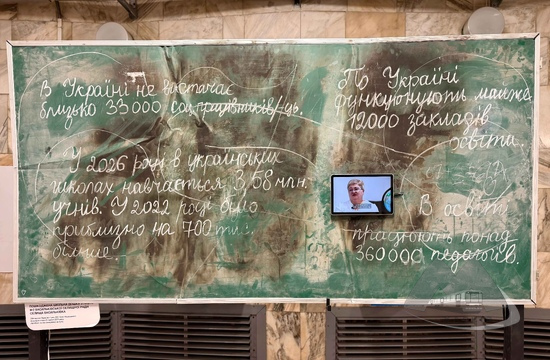 В Україні не вистачає
близько 33000 соц.працівників/ць.
У 2026 році в українських
школах навчається 3,58 млн.
учнів. У 2022 році було
приблизно на 700 тис.
більше.
По Україні
функціонують майже
12000 закладів
освіти.
В освіті
працюють понад
360000 педагогів.